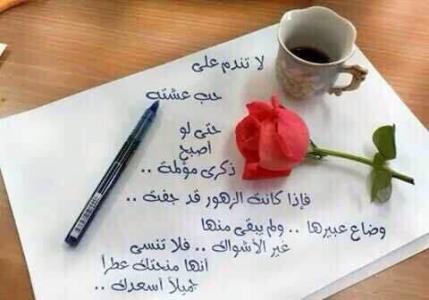 لا تندم على
حب عشته
حتى لو
اصبح
ذكرى مؤلمة ..
فإذا كانت الزهور قد جفت ..
وضاع عبيرها .. ولم يبقى منها
غير الأشواك .. فلا تنسى
انها منحتك عطرا
جميلاً أسعدك ..